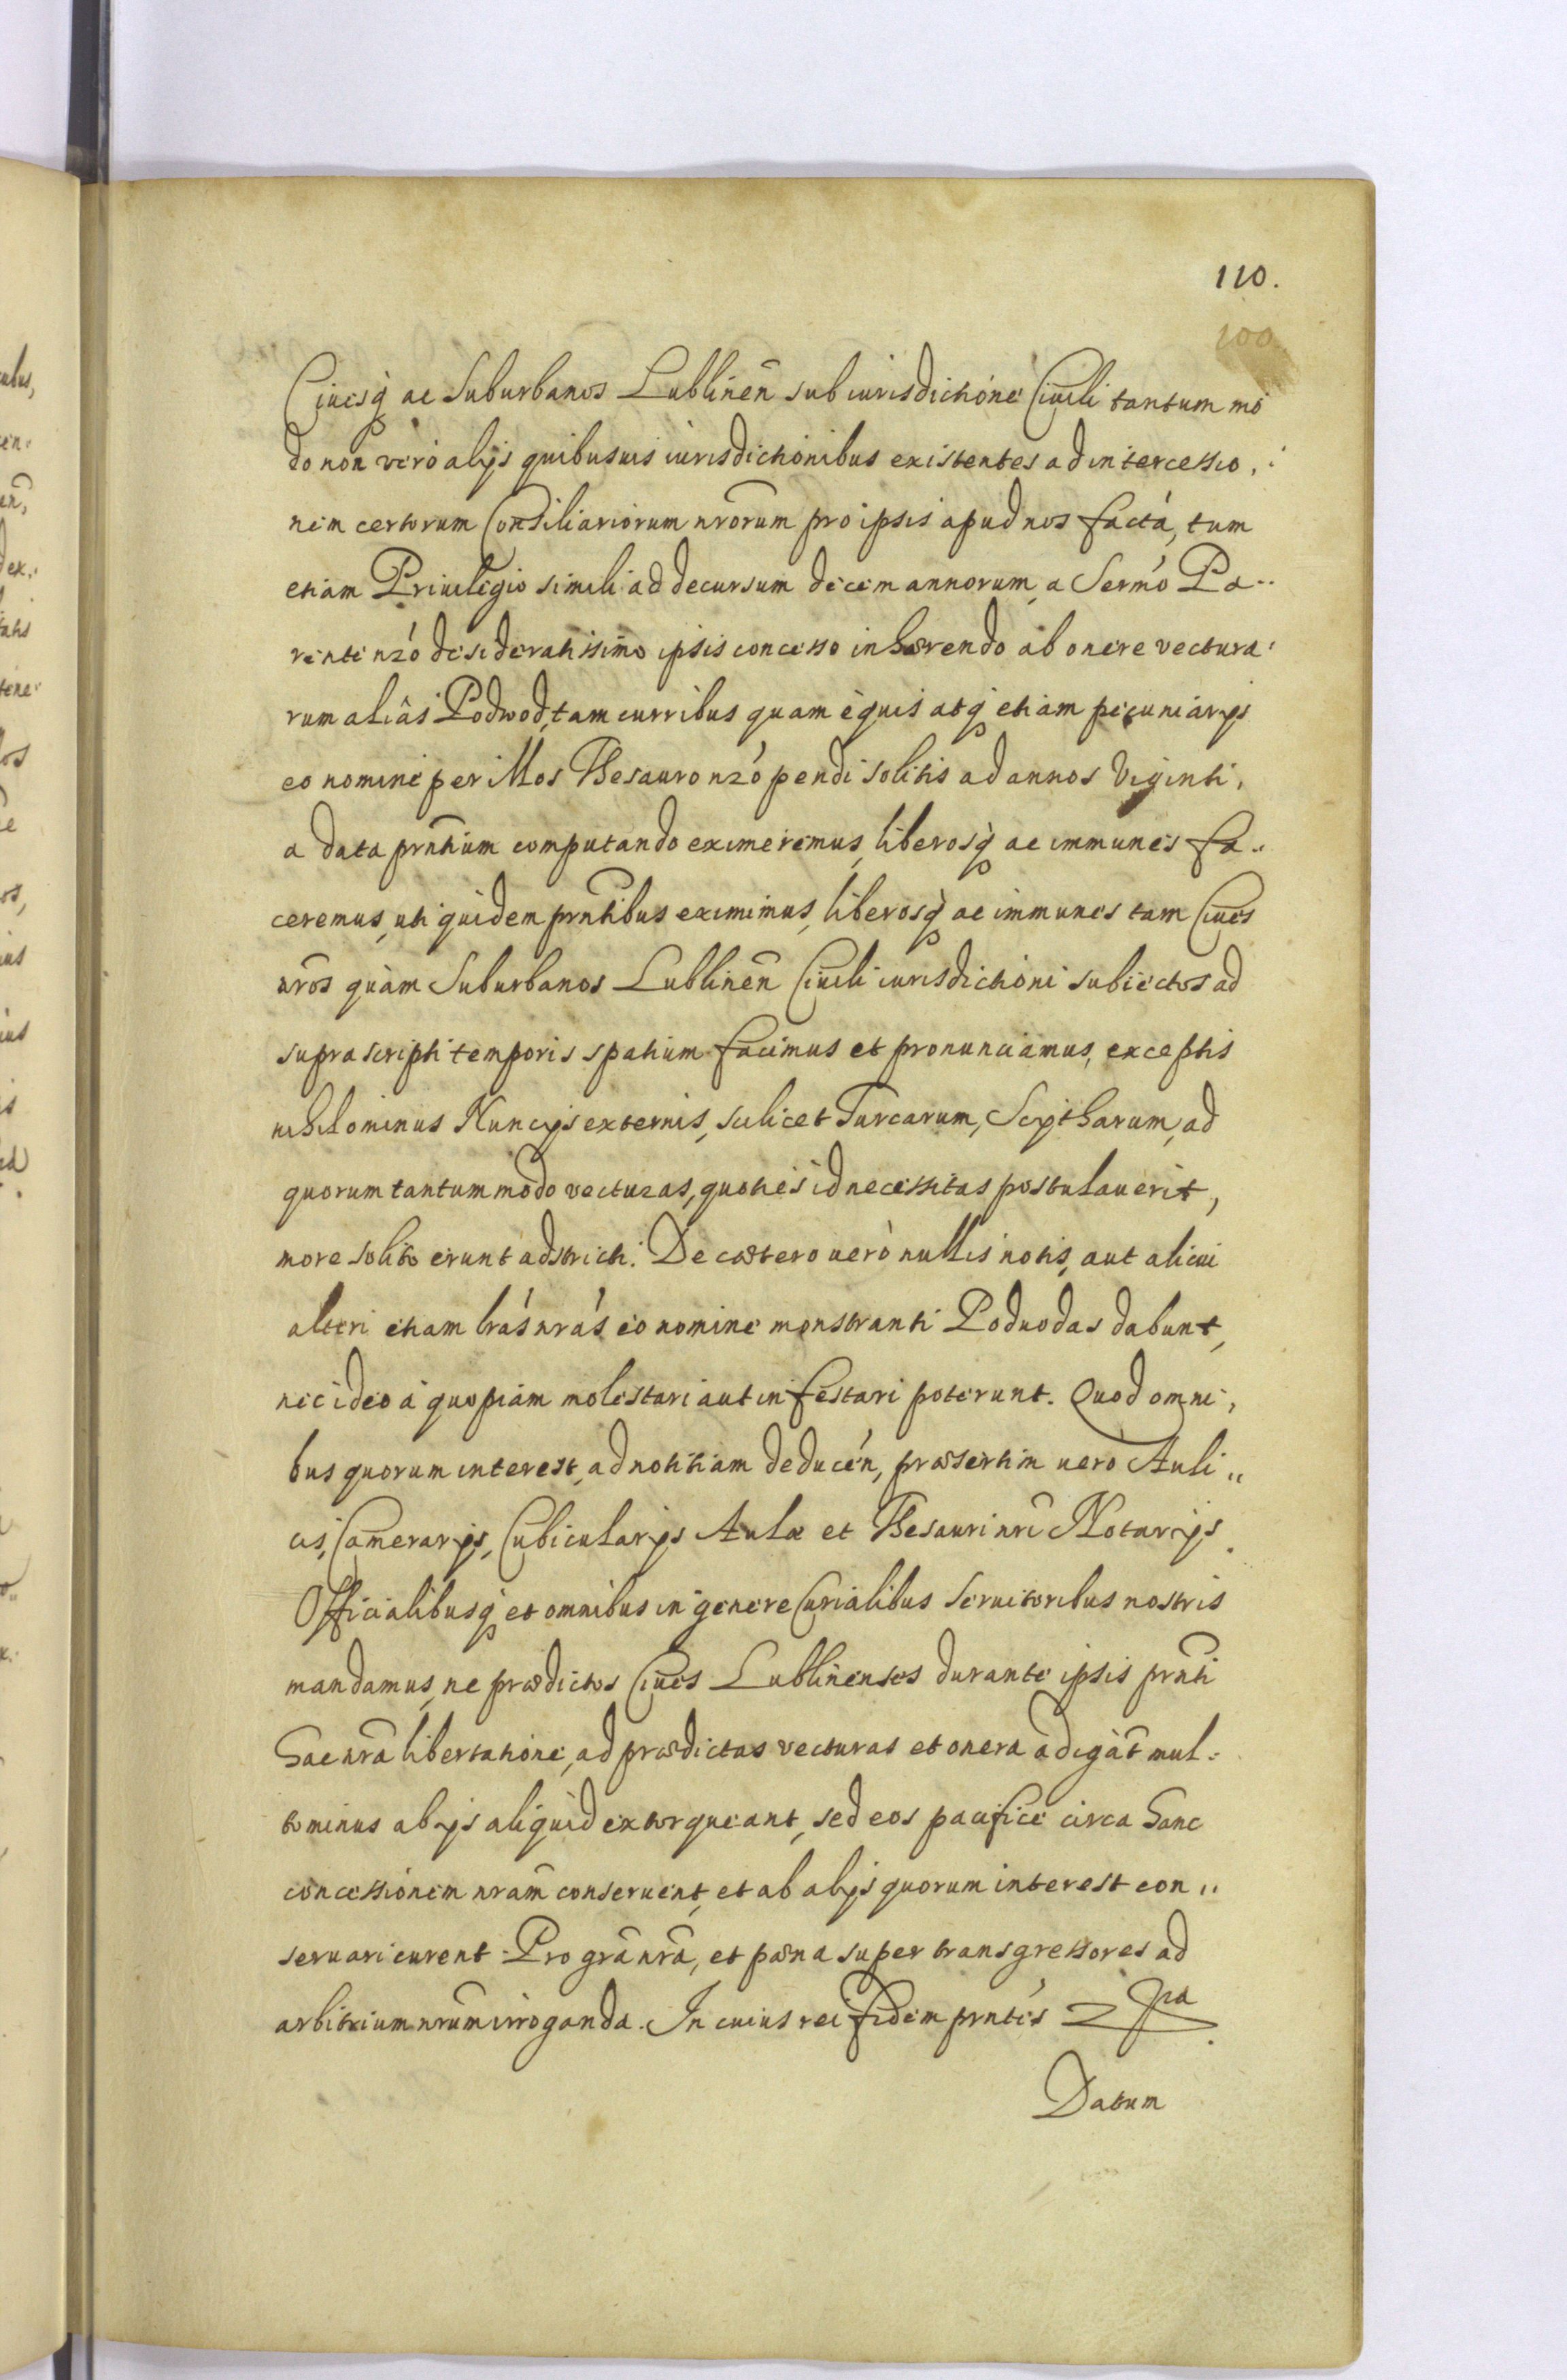 110.
100
Ciuesq ac Suburbanos Lublinen̄ sub iurisdictione Ciuili tantum mo
do non vero alijs quibusuis iurisdictionibus existentes ad intercessio,
nem certorum Consiliariorum nrōrum pro ipsis apud nos factá, tum
etiam Priuilegio simili ad decursum decem annorum, a Sermó Pa..
rente nró desideratissimo ipsis concesso inhærendo ab onere vectura:
rum aliâs Podwod, tam curribus quam equis atq etiam pecuniarijs
eo nomine per illos Thesauro nró pendi solitis ad annos Viginti,
a data prntium computando eximeremus, liberosq ac immunes fa..
ceremus, uti quidem prntibus eximimus, liberosq ac immunes tam Ciues
nrōs quàm Suburbanos Lublinen̄ Ciuili iurisdictioni subiectos ad
suprascripti temporis spatium facimus et pronunciamus, exceptis
nihilominus Nuncijs externis, scilicet Turcarum, Scijtharum, ad
quorum tantummodo vecturas, quoties id necessitas postulauerit,
more solito erunt adstricti. De cætero uerò nullis notis, aut alicui
alteri etiam lrás nrás eo nomine monstranti Poduodas dabunt,
nec ideo à quopiam molestari aut infestari poterunt. Quod omni,
bus quorum interest, ad notitiam deducén, præsertim uerò Auli,,
cis, Camerarijs, Cubicularijs Aulæ et Thesauri nrī Notarijs
Officialibusq et omnibus in genere Curialibus Seruitoribus nostris
mandamus, ne prædictos Ciues Lublinenses durante ipsis prnti
hac nrā libertatione, ad prædictas vecturas et onera adigāt mul-
tominus ab ijs aliquid extorqueant, sed eos pacifice circa hanc
concessionem nram̄ conseruent, et ab alijs quorum interest con,,
seruari curent. Pro grā nrā, et pæna super transgressores ad
arbitrium nrūm irroganda. In cuius rei fidem prntes
Datum